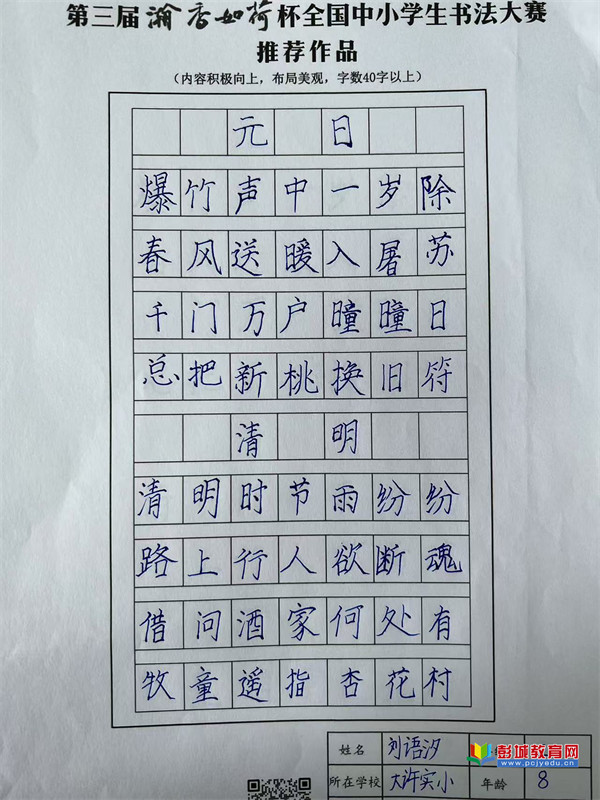 第三届瀚香如荷杯全国中小学生书法大赛
推荐作品
（内容积极向上，布局美观，字数40字以上）
元日
爆竹声中一岁除
春风送暖入屠苏
千门万户曈曈日
总把新桃换旧符
清明
清明时节雨纷纷
路上行人欲断魂
借问酒家何处有
牧童遥指杏花村
姓名 刘语汐
所在学校 大许实小 年龄 8
彭城教育网
www.pcjyedu.cn